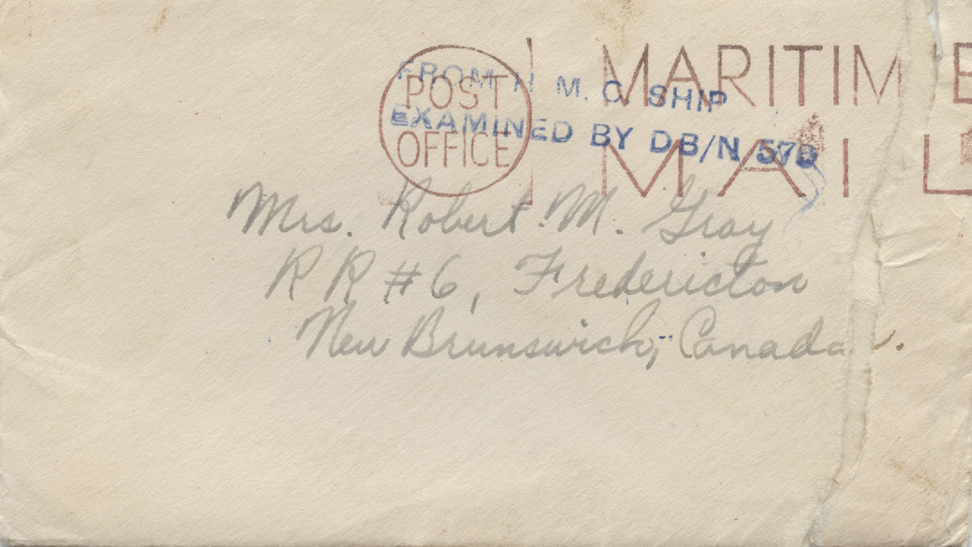 POST
OFFICE
MARITIME
MAIL
FROM H.M.C. SHIP
EXAMINED BY DB/N 578
Mrs. Robert M. Gray
R R #6, Fredericton
New Brunswick, Canada.